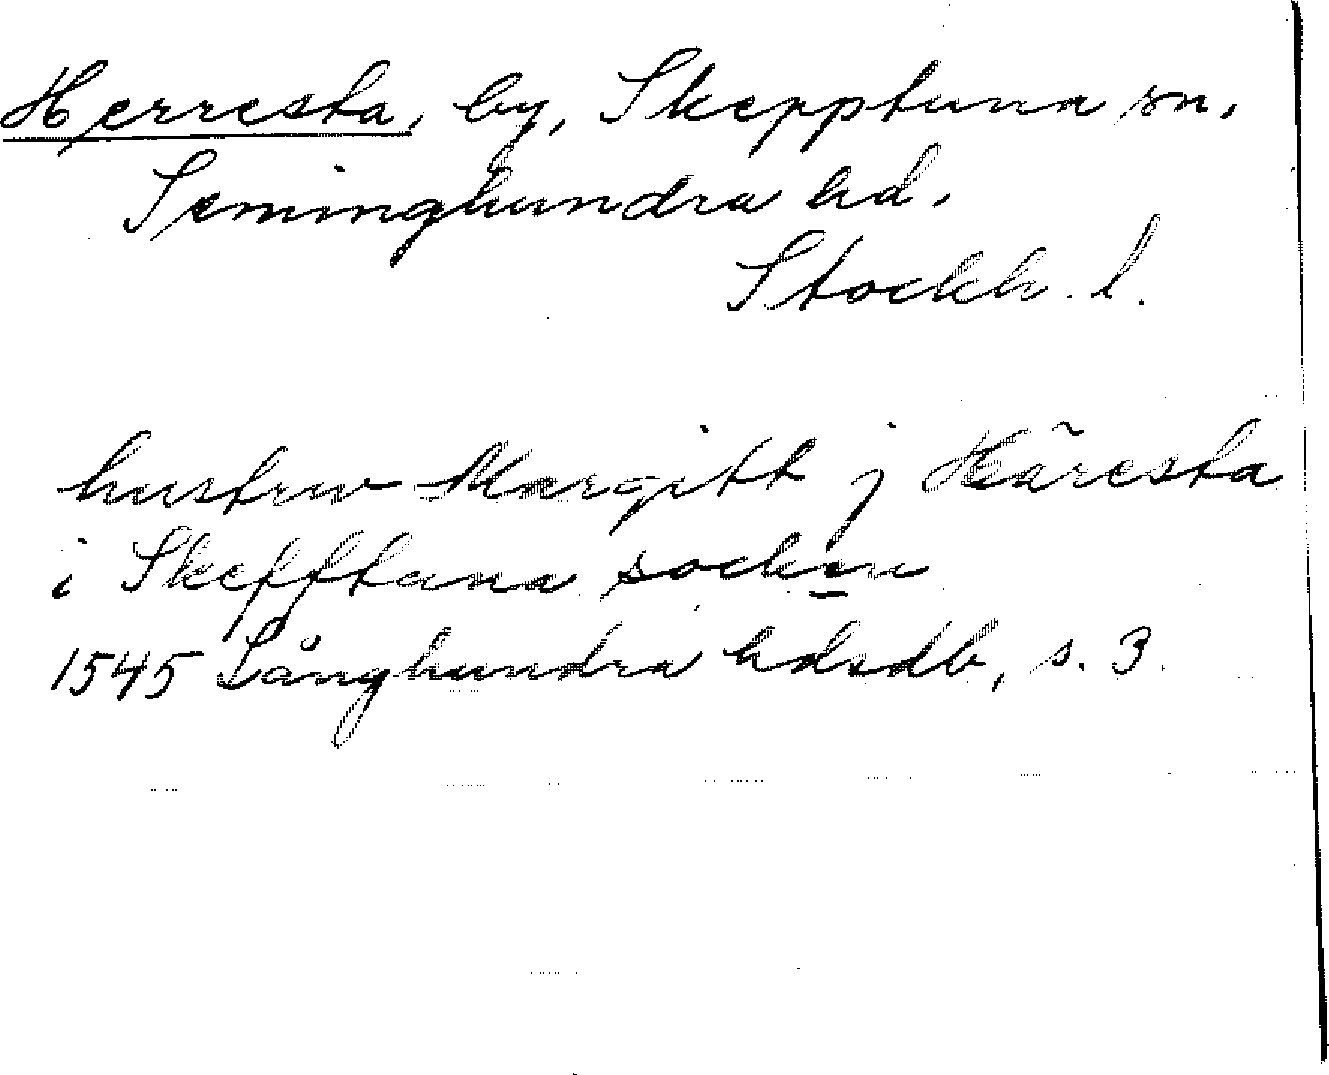 Herresta, by, Skepptuna sn,
Seminghundra hd.
Stockh. l.
hustrw Margitt j Häresta
i Skefftuna socken
1545 Långhundra hdsdb, s. 3.